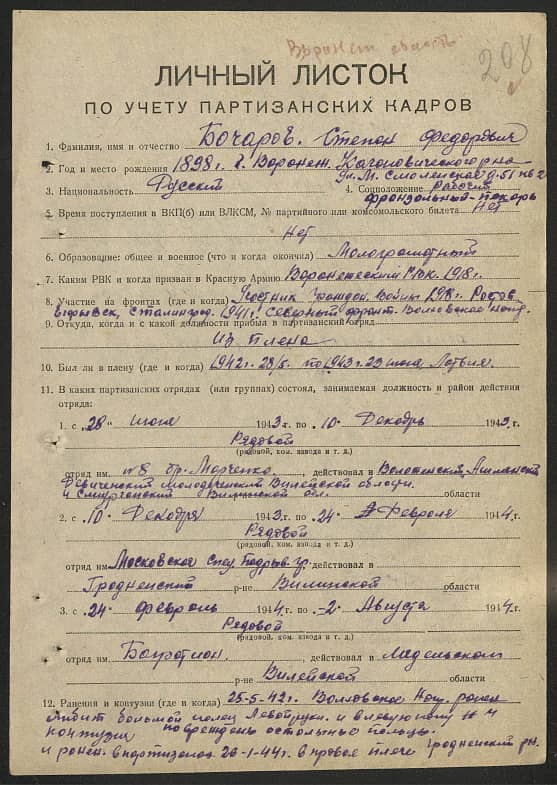 Воронеж область
208
ЛИЧНЫЙ ЛИСТОК
ПО УЧЕТУ ПАРТИЗАНСКИХ КАДРОВ
1. Фамилия, имя и отчество Бочаров. Степан Федорович
2. Год и место рождения 1898 г. г. Воронеж. Кагановического р-на
ул. М. Смоленская д-51 кв 2
3. Национальность Русский 4. Соцположение рабочий
французольный-пекарь
5. Время поступления в ВКП(б) или ВЛКСМ, № партийного или комсомольского билета Нет
Нет
6. Образование: общее и военное (что и когда окончил) Малограмотный
7. Каким РВК и когда призван в Красную Армию Воронежский 1918 г.
8. Участие на фронтах (где и когда) Участник Граждан. Войны 1918 г. Ростов
Сталинград. 1941 г. Северный фронт. Волховское
9. Откуда, когда и с какой должности прибыл в партизанский отряд
из плена
10. Был ли в плену (где и когда) 1942 г. 28/5. по 1943 г. 23 июня Латвия.
11. В каких партизанских отрядах (или группах) состоял, занимаемая должность и район действия
отряда:
1. с „28" июня 1943 г. по „10" Декабрь 1943 г.
Рядовой
(рядовой, ком. взвода и т. д.)
отряд им. № 8 бр. Марченко, действовал в Воложенский, Ашмянский
Молодеченский Вилейской области.
и Сморгонский Вилинской обл. области
2. с „10" Декабря 1943 г. по „24" Февраля 1944 г.
Рядовой
(рядовой, ком. взвода и т. д.)
отряд им Московское спец. Подрыв. гр. действовал в
Гродненский р-не Вилинской области
3. с „24" февраль 1944 г. по „2" Августа 1944 г.
Рядовой
(рядовой, ком. взвода и т. д.)
отряд им. Багратион. , действовал в Мядельском
р-не Вилейской области
12. Ранения и контузии (где и когда) 25-5-42 г. Волховское ранен
большой палец Левой руки. и в левую ногу и
контузия повреждены остальные пальцы.
и ранен. в партизанах 26-1-44 г. в правое плечо Гродненский рн.